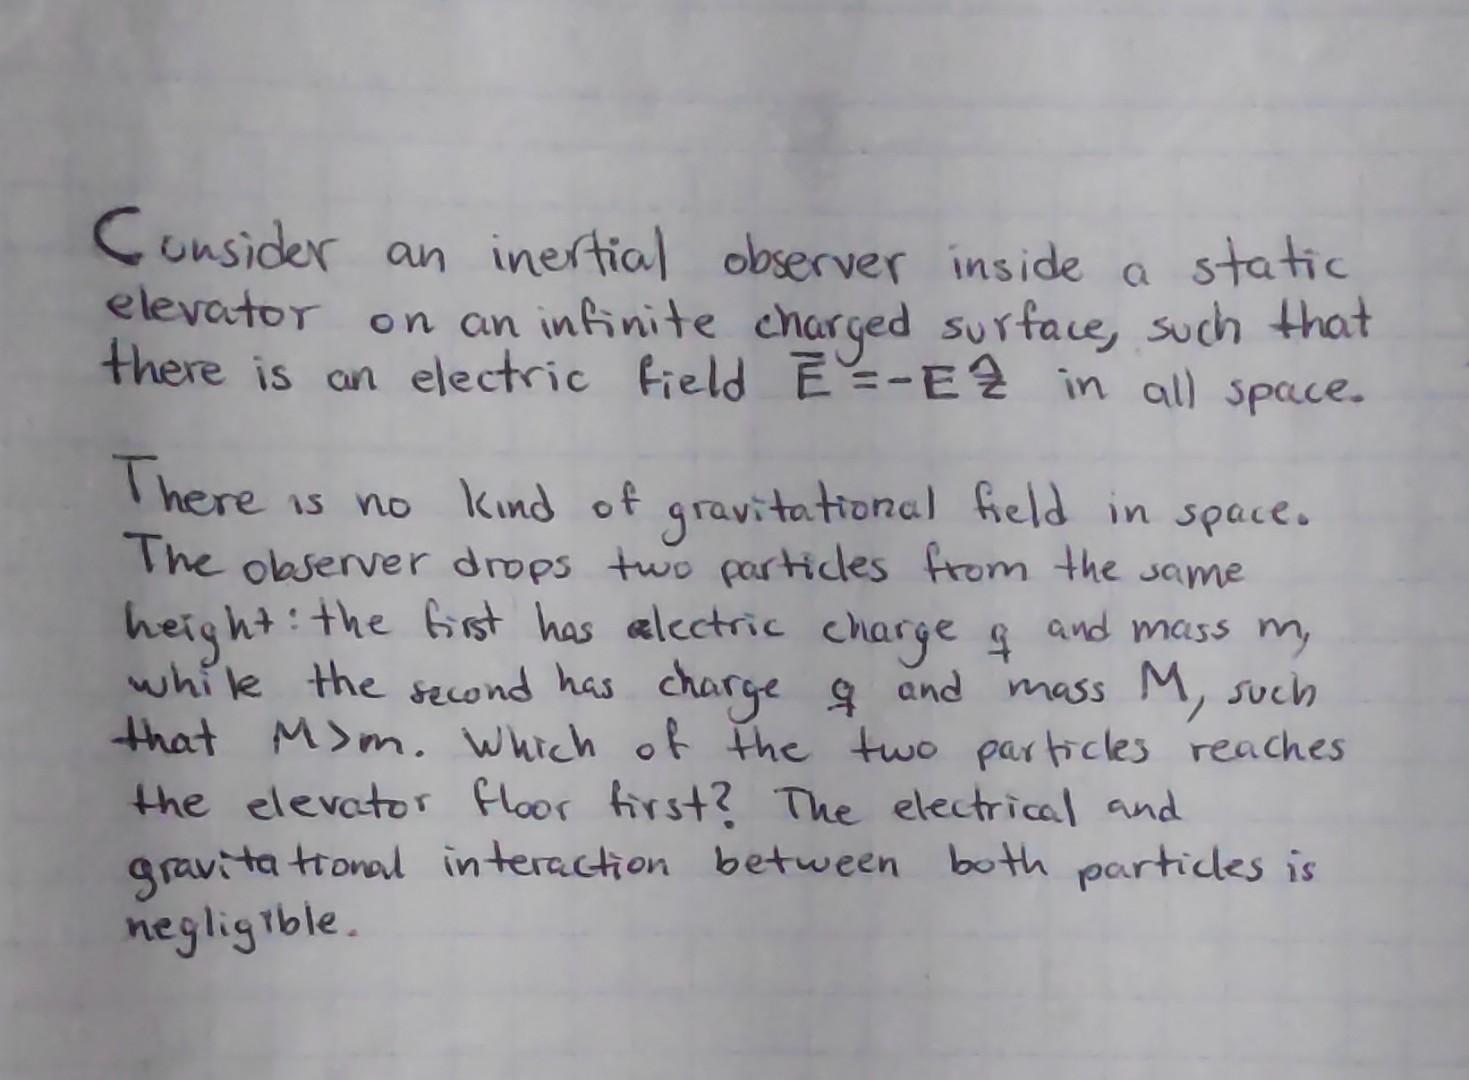 Consider an inertial observer inside a static
elevator on an infinite charged surface, such that
there is an electric field E⃗ = -E ẑ in all space.
There is no kind of gravitational field in space.
The observer drops two particles from the same
height: the first has electric charge q and mass m,
while the second has charge q and mass M, such
that M>m. Which of the two particles reaches
the elevator floor first? The electrical and
gravitational interaction between both particles is
negligible.